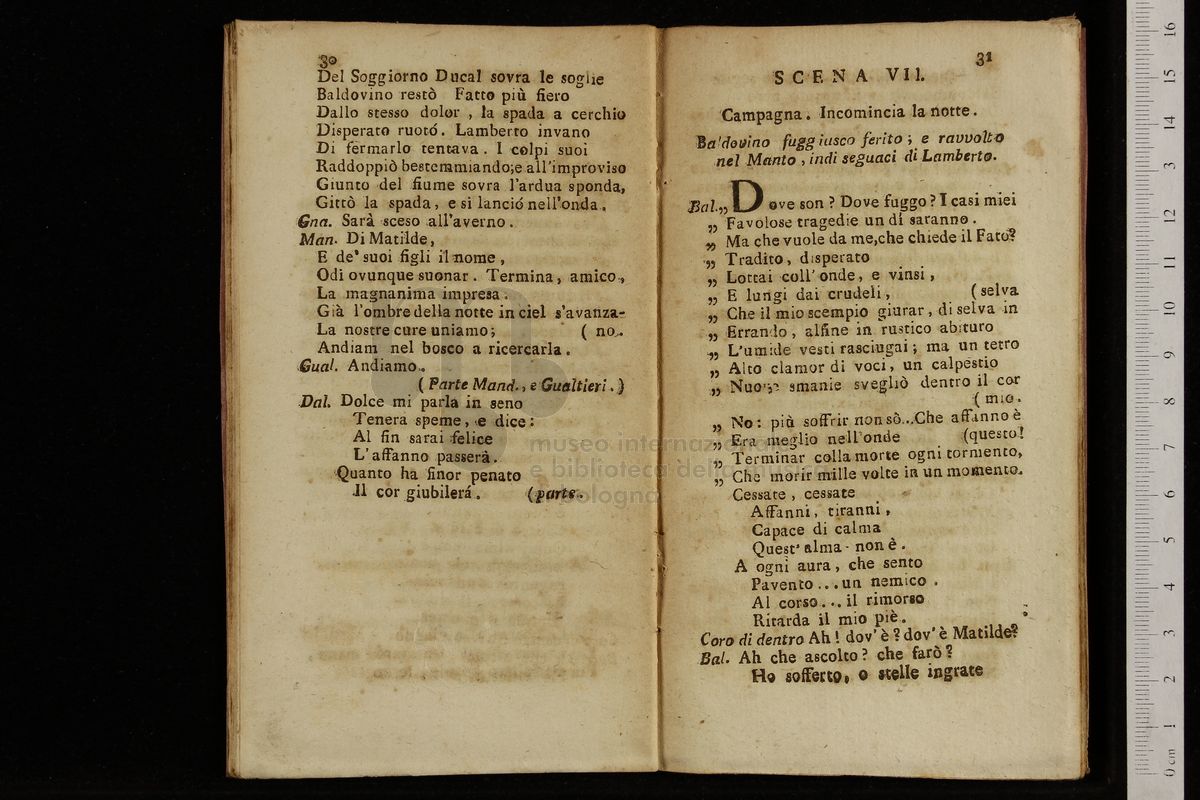 30
Del Soggiorno Ducal sovra le soglie
Baldovino restò Fatto più fiero
Dallo stesso dolor , la spada a cerchio
Disperato ruotó. Lamberto invano
Di fermarlo tentava . I colpi suoi
Raddoppiò bestemmiando;e all'improviso
Giunto del fiume sovra l'ardua sponda,
Gittò la spada, e si lanciò nell'onda.
Gna. Sarà sceso all'averno.
Man. Di Matilde,
E de' suoi figli il nome,
Odi ovunque suonar. Termina, amico,
La magnanima impresa.
Già l'ombre della notte in ciel s'avanza-
La nostre cure uniamo; ( no.
Andiam nel bosco a ricercarla.
Gual. Andiamo.
( Parte Mand., e Gualtieri. )
Dal. Dolce mi parla in seno
Tenera speme, e dice:
Al fin sarai felice
L'affanno passerà.
Quanto ha finor penato
Il cor giubilerá. (parte.
31
SCENA VII.
Campagna. Incomincia la notte.
Ba'dovino fugg iusco ferito; e ravvolto
nel Manto, indi seguaci di Lamberto.
Bal.,, Dove son? Dove fuggo? I casi miei
,, Favolose tragedie un dí saranno.
,, Ma che vuole da me,che chiede il Fato?
,, Tradito, disperato
,, Lottai coll' onde, e vinsi,
,, E lungi dai crudeli, (selva
,, Che il mio scempio giurar, di selva in
,, Errando, alfine in rustico abituro
,, L'umide vesti rasciugai; ma un tetro
,, Alto clamor di voci, un calpestio
,, Nuove smanie svegliò dentro il cor
( mio.
,, No: più soffrir non sò...Che affanno è
,, Era meglio nell'onde (questo!
,, Terminar colla morte ogni tormento,
,, Che morir mille volte in un momento.
Cessate, cessate
Affanni, tiranni,
Capace di calma
Quest' alma non è.
A ogni aura, che sento
Pavento...un nemico.
Al corso...il rimorso
Ritarda il mio piè.
Coro di dentro Ah! dov'è? dov'è Matilde?
Bal. Ah che ascolto? che farò?
Ho sofferto, o stelle ingrate
museo internazionale
e biblioteca della musica
di bologna
0 cm 1 2 3 4 5 6 7 8 9 10 11 12 13 14 15 16